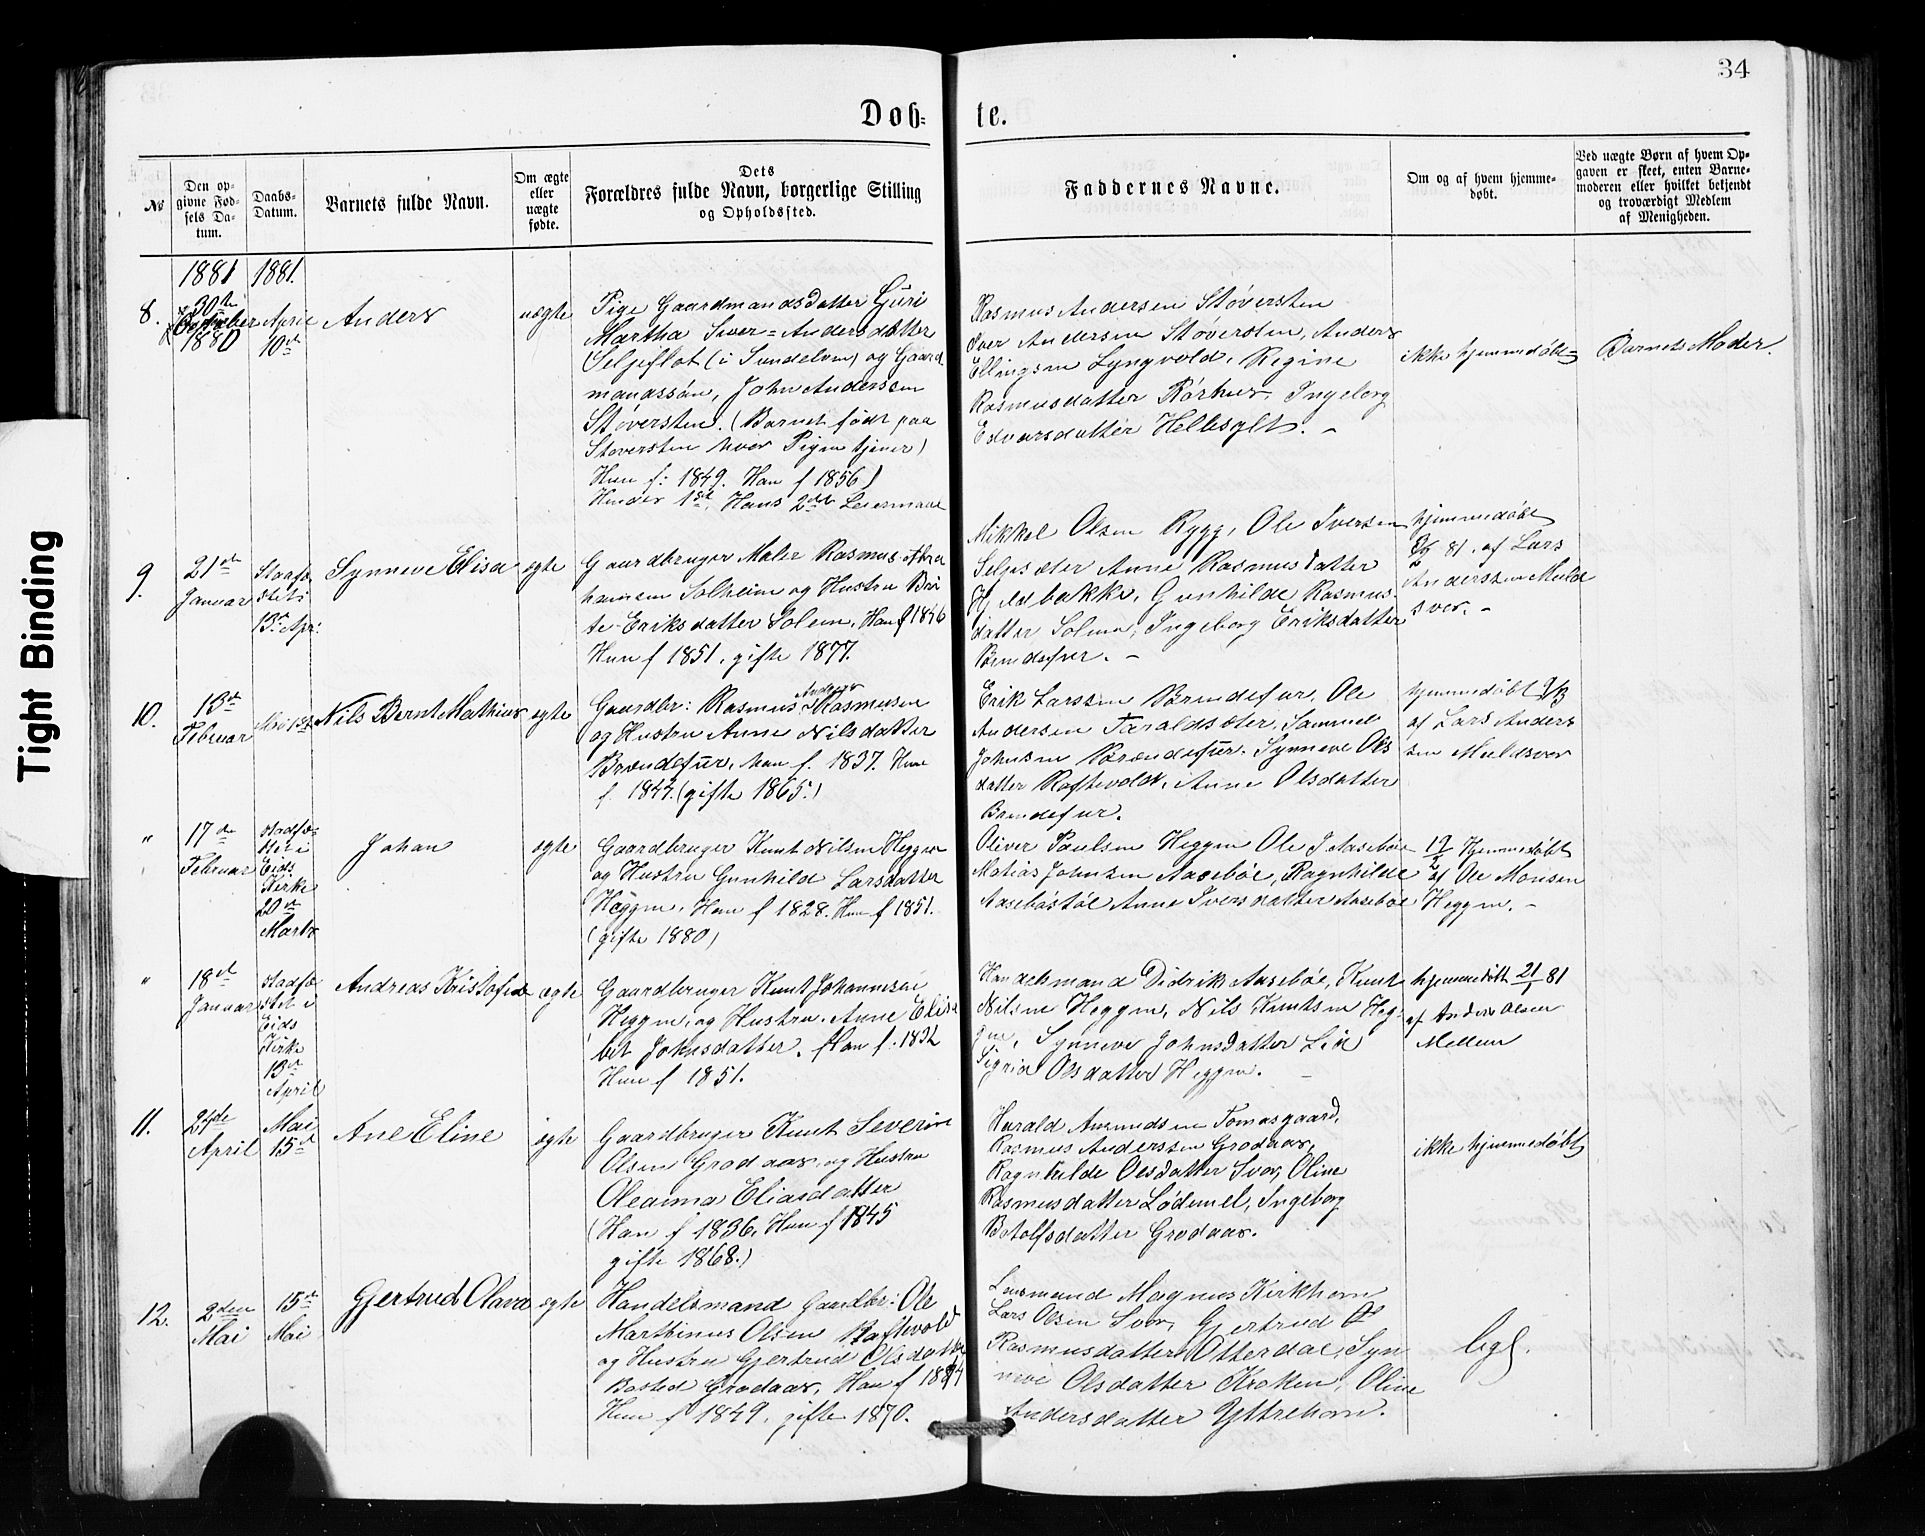 34
Døb-
te.
№
Den op-
givne Fød-
sels Da-
tum.
Daabs-
Datum.
Barnets fulde Navn.
Om ægte
eller
uægte
fødte.
Dets
Forældres fulde Navn, borgerlige Stilling
og Opholdssted.
Faddernes Navne.
Om og af hvem hjemme-
døbt.
Ved uægte Børn af hvem Op-
gaven er skeet, enten Barne-
moderen eller hvilket bekjendt
og troværdigt Medlem
af Menigheden.
1881
1881.
8.
30te
1880
April
10de
Anders
uægte
Pige Gaardmandsdatter Guri
Martha Iver=Andersdatter
Seljeflot (i Sundelven) og Gaard
mandssøn, John Anderssen
Støversten. (Barnet født paa
Støversten hvor Pigen tjener)
Hun f: 1849. Han f 1856)
Hendes 1ste, Hans 2det Leiermaal
Rasmus Andersen Støversten
Iver Andersen Støversten, Anders
Ellingsen Lyngvold, Regine
Rasmusdatter Rørhus, Ingeborg
Edvarsdatter Hellesylt. -
ikke hjemmedøbt=
Barnets Moder.
9.
21de
Januar
Stadfæ
stet i
13de Apr:
Synneve Elisa
ægte
Gaardbruger Maler Rasmus Abra
hamsen Solheim og Hustru Bri
te Eriksdatter Solem, Han f 1846
Hun f 1851. gifte 1877.
Mikkel Olsen Rygg, Ole Iversen
Seljesæter Anne Rasmusdatter
Hjelebakke, Gunhilde Rasmus-
datter Solem, Ingeborg Eriksdatter
Brendefur. -
hjemmedøbt
81. af Lars
Anderssen Muld
svor. -
10.
13de
Februar
Mai 1ste
Nils Bernt Mathias
ægte
Gaardbr: Rasmus Anderssen Rasmussen
og Hustru Anne Nilsdatter
Brændefur, han f. 1837. Hun
f. 1844. (gifte 1865.)
Erik Larssen Brendefur, Ole
Andersen Taraldsæter, Samuel
Johnsen Brændefur. Synneve Ols
datter Raftevold, Anne Olsdatter
Brendefur.
hjemmedøbt
af Lars Anders
sen Muldsvor
"
17de
Februar
stadfæ-
stet i
Eids
Kirke
20de
Marts
Johan
ægte
Gaardbruger Knut Nilsen Heggen
og Hustru Gunhild Larsdatter
Heggen, Han f 1828. Hun f 1851.
(gifte 1880)
Oliver Paulsen Heggen Ole J Aasebøe
Matias Johnsen Aasebøe, Ragnhilde
Aasebøstøl Anne Iversdatter Aasebøe
19/2 Hjemmedøbt
af Ole Monsen
Heggen. -
"
18de
Januar
stadfæ
stet i
Eids
Kirke
13de
April
Andreas Kristofer
ægte
Gaardbruger Knut Johannesen
Heggen, og Hustru. Anne Elisa
bet Johnsdatter. Han f. 1832
Hun f 1851.
Handelsmand Didrik Aasebøe, Knut
Nilsen Heggen, Nils Knutsen Heg-
gen, Synneve Johnsdatter Lie
Sigrid Olsdatter Heggen. -
hjemmedøbt 21/1 81
af Anders Olsen
Mellem
11.
27de
April
Mai
15de
Ane Eline
ægte
Gaardbruger Knut Severin
Olsen Grodaas, og Hustru
Oleanna Eliasdatter
(Han f 1836, Hun f 1845
gifte 1868.)
Harald Aasmundsen Tomasgaard,
Rasmus Anderssen Grodaas,
Ragnhilde Olesdatter Svor, Oline
Rasmusdatter Lødemel, Ingeborg
Botolfsdatter Grodaas.
ikke hjemmedøbt
12.
2den
Mai
15de
Mai
Gjertrud Olava
ægte
Handelsmand Gaardbr: Ole
Marthinus Olsen Raftevold
og Hustru Gjertrud Olsdatter
Bosted Grodaas, Han f 1844
Hun f 1849. gifte 1870.
Lensmand Magnus Kirkhorn
Lars Olsen Svor, Gjertrud
Rasmusdatter Otterdal, Syn
neve Olsdatter Kroken, Oline
Andersdatter Yttrehorn.
ligs.
Tight Binding